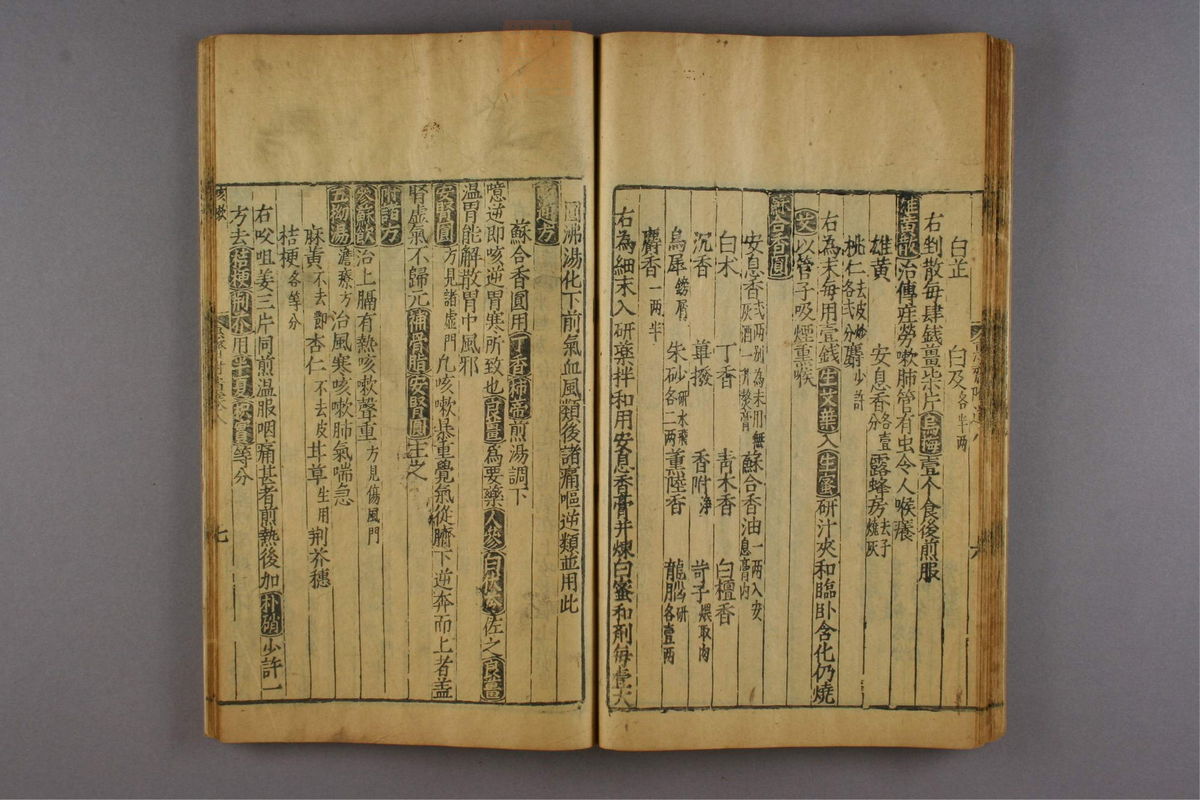 白芷 白及各半两
右剉散每肆錢薑柒片烏梅壹个食後煎服
雄黃散治傳疰勞嗽肺管有虫令人喉癢
雄黃 安息香各壹分 露蜂房去子燒灰
桃仁去皮炒各弍分 麝少許
右為末每用壹錢生艾葉入生蜜研汁夾和臨卧含化仍燒
艾以管子吸煙熏喉
蘇合香圓
安息香弍两別為末用無灰酒一 熬膏 蘇合香油一两入安息膏內
白术 丁香 青木香 白檀香
沉香 蓽撥 香附淨 訶子煨取肉
烏犀鎊屑 朱砂研水飛各二两 薰陸香 龍腦研各壹两
麝香一两半
右為細末入研藥拌和用安息香膏并煉白蜜和劑每
圓沸湯化下前氣血風類後諸痛嘔逆類並用此
通方
蘇合香圓用丁香柿蒂煎湯調下
噫逆即咳逆胃寒所致也良薑為要藥人參白茯苓佐之良薑
温胃能解散胃中風邪
安腎圓方見諸虛門 凡咳嗽暴重覺氣從臍下逆奔而上者盖
腎虛氣不歸元補骨脂安腎圓主之
附諸方
參蘇飲治上膈有熱咳嗽聲重方見傷風門
五拗湯澹寮方治風寒咳嗽肺氣喘急
麻黃不去節 杏仁不去皮 甘草生用 荆芥穗
桔梗各等分
右㕮咀姜三片同煎温服咽痛甚者煎熱後加朴硝少許一
方去桔梗荆芥用半夏枳實等分
咳嗽
七